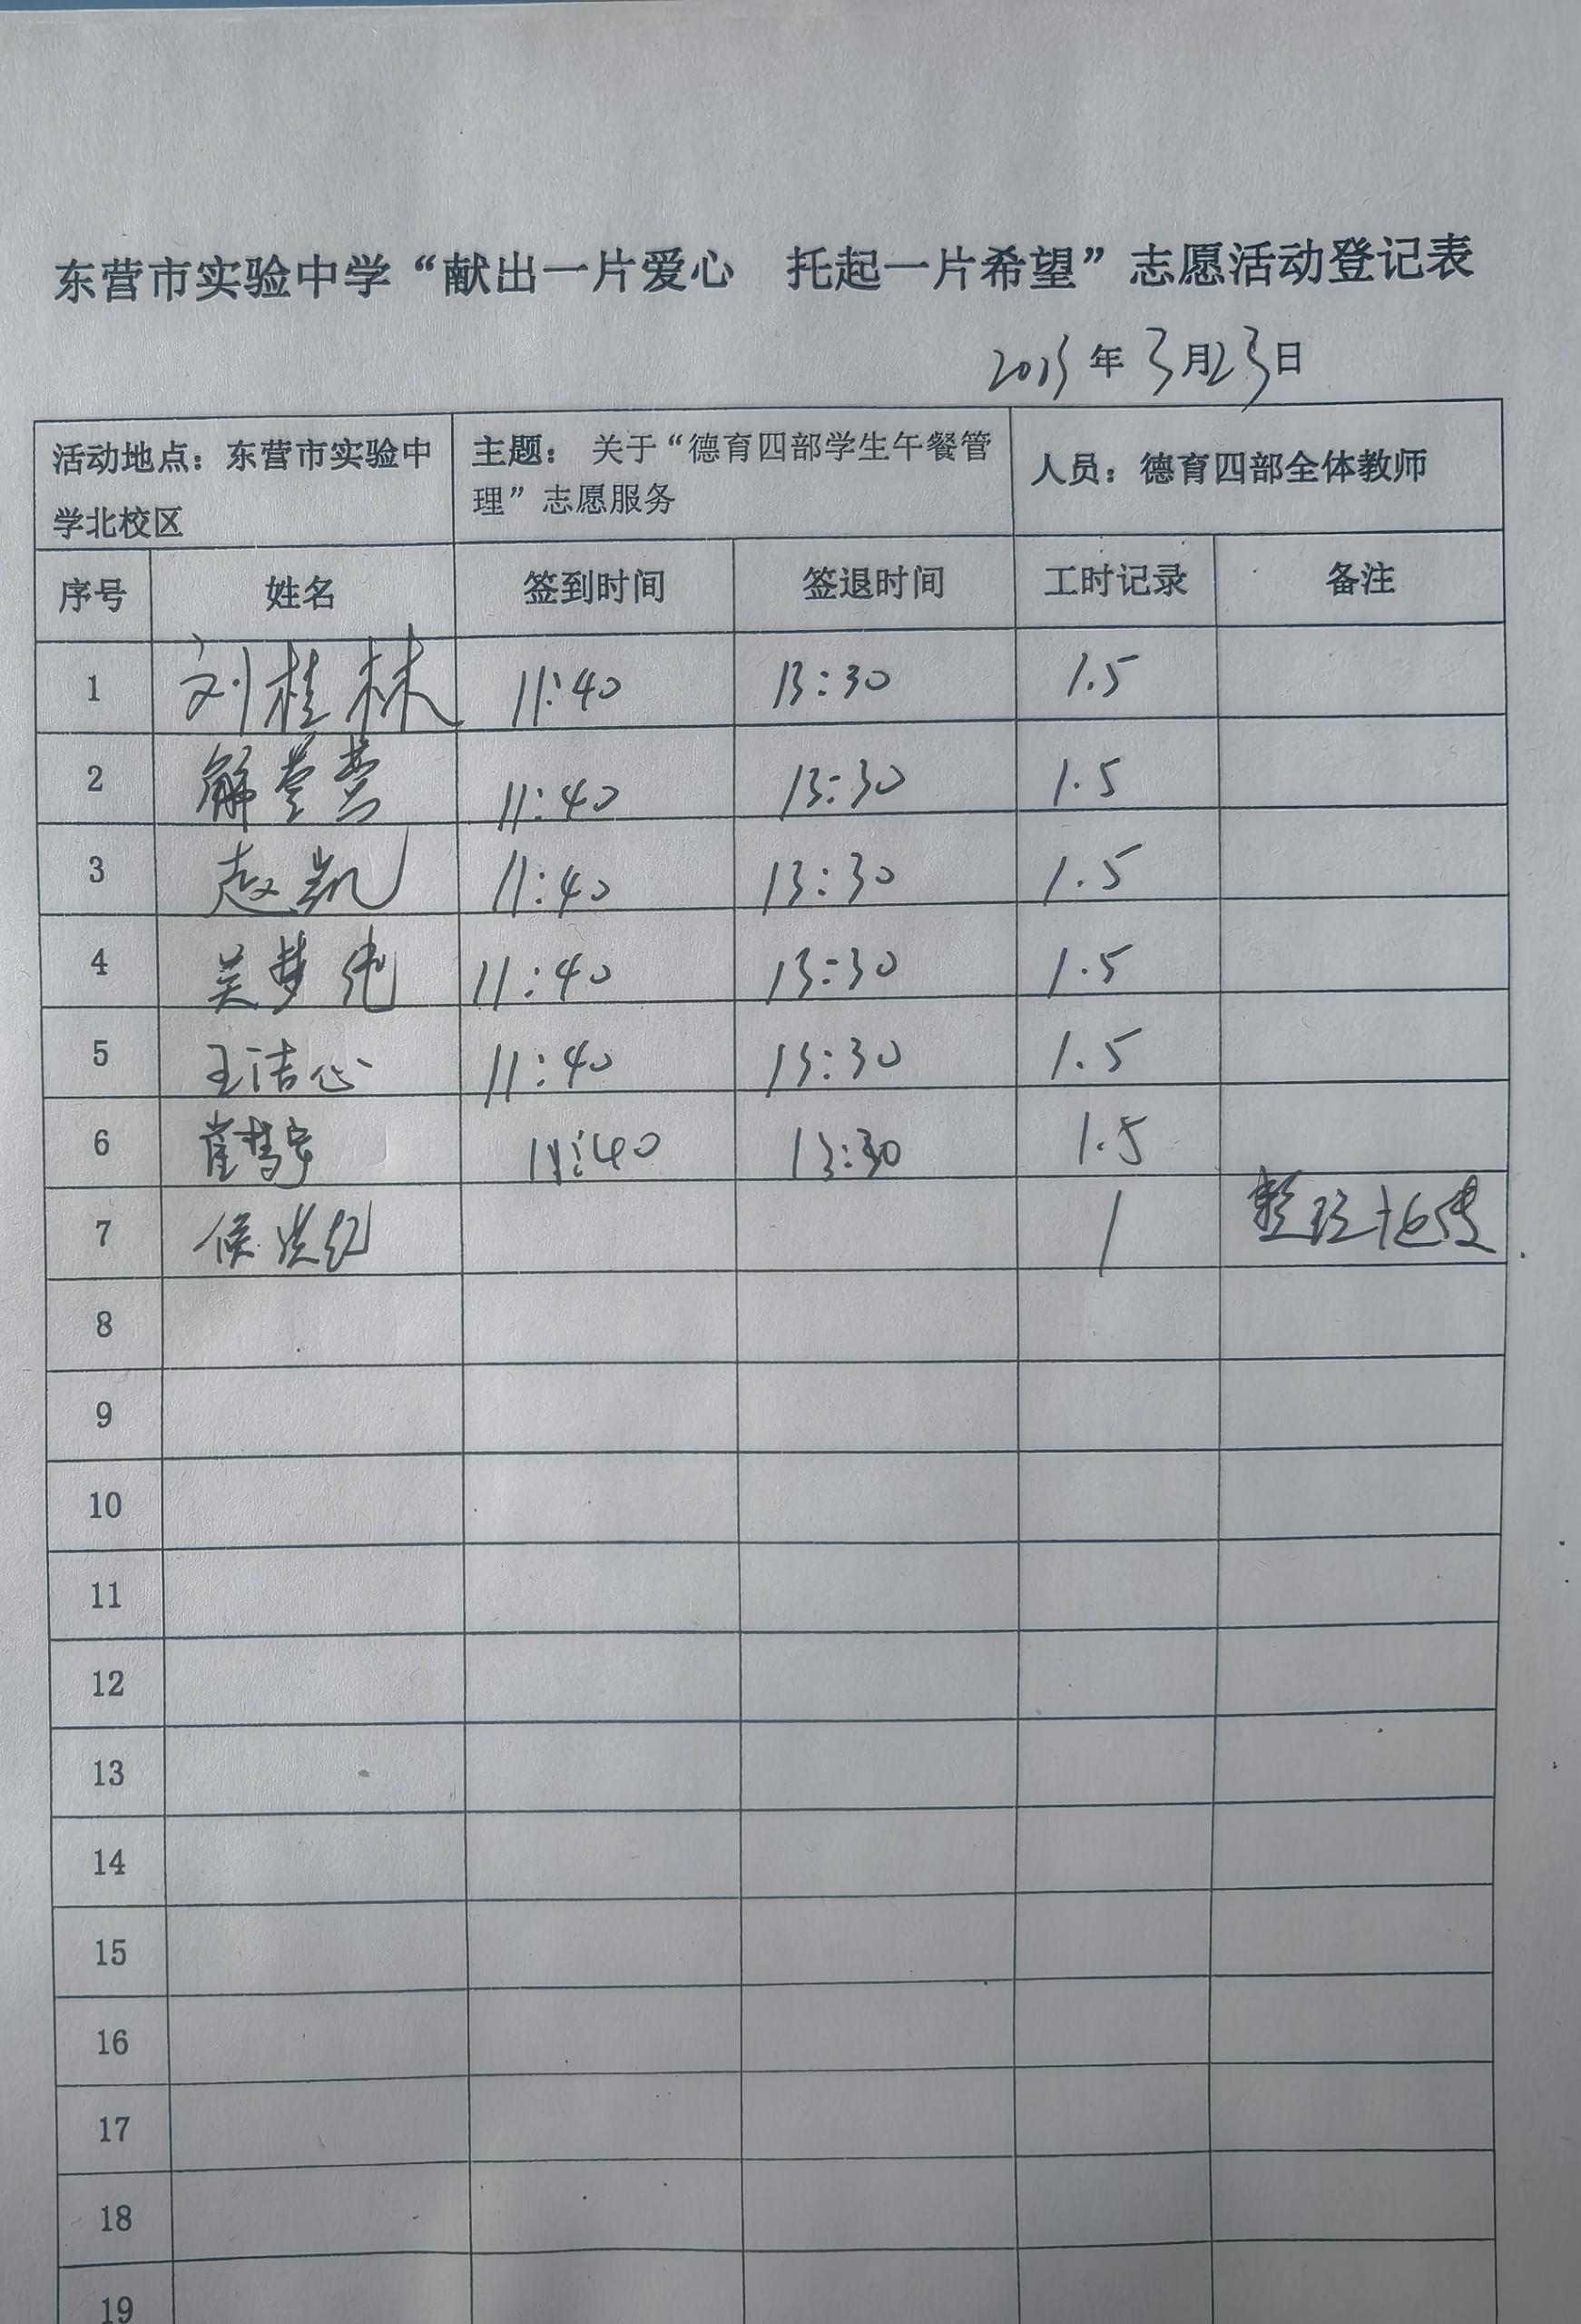 东营市实验中学“献出一片爱心 托起一片希望”志愿活动登记表
年 3月23日
活动地点：东营市实验中
学北校区
主题： 关于“德育四部学生午餐管
理”志愿服务
人员：德育四部全体教师
序号 姓名 签到时间 签退时间 工时记录 备注
1 刘桂林 11:40 13:30 1.5
2 解莹莹 11:40 13:30 1.5
3 赵凯 11:40 13:30 1.5
4 吴梦 11:40 13:30 1.5
5 王洁心 11:40 13:30 1.5
6 崔梦宇 11:40 13:30 1.5
7 侯 1 整理
8
9
10
11
12
13
14
15
16
17
18
19